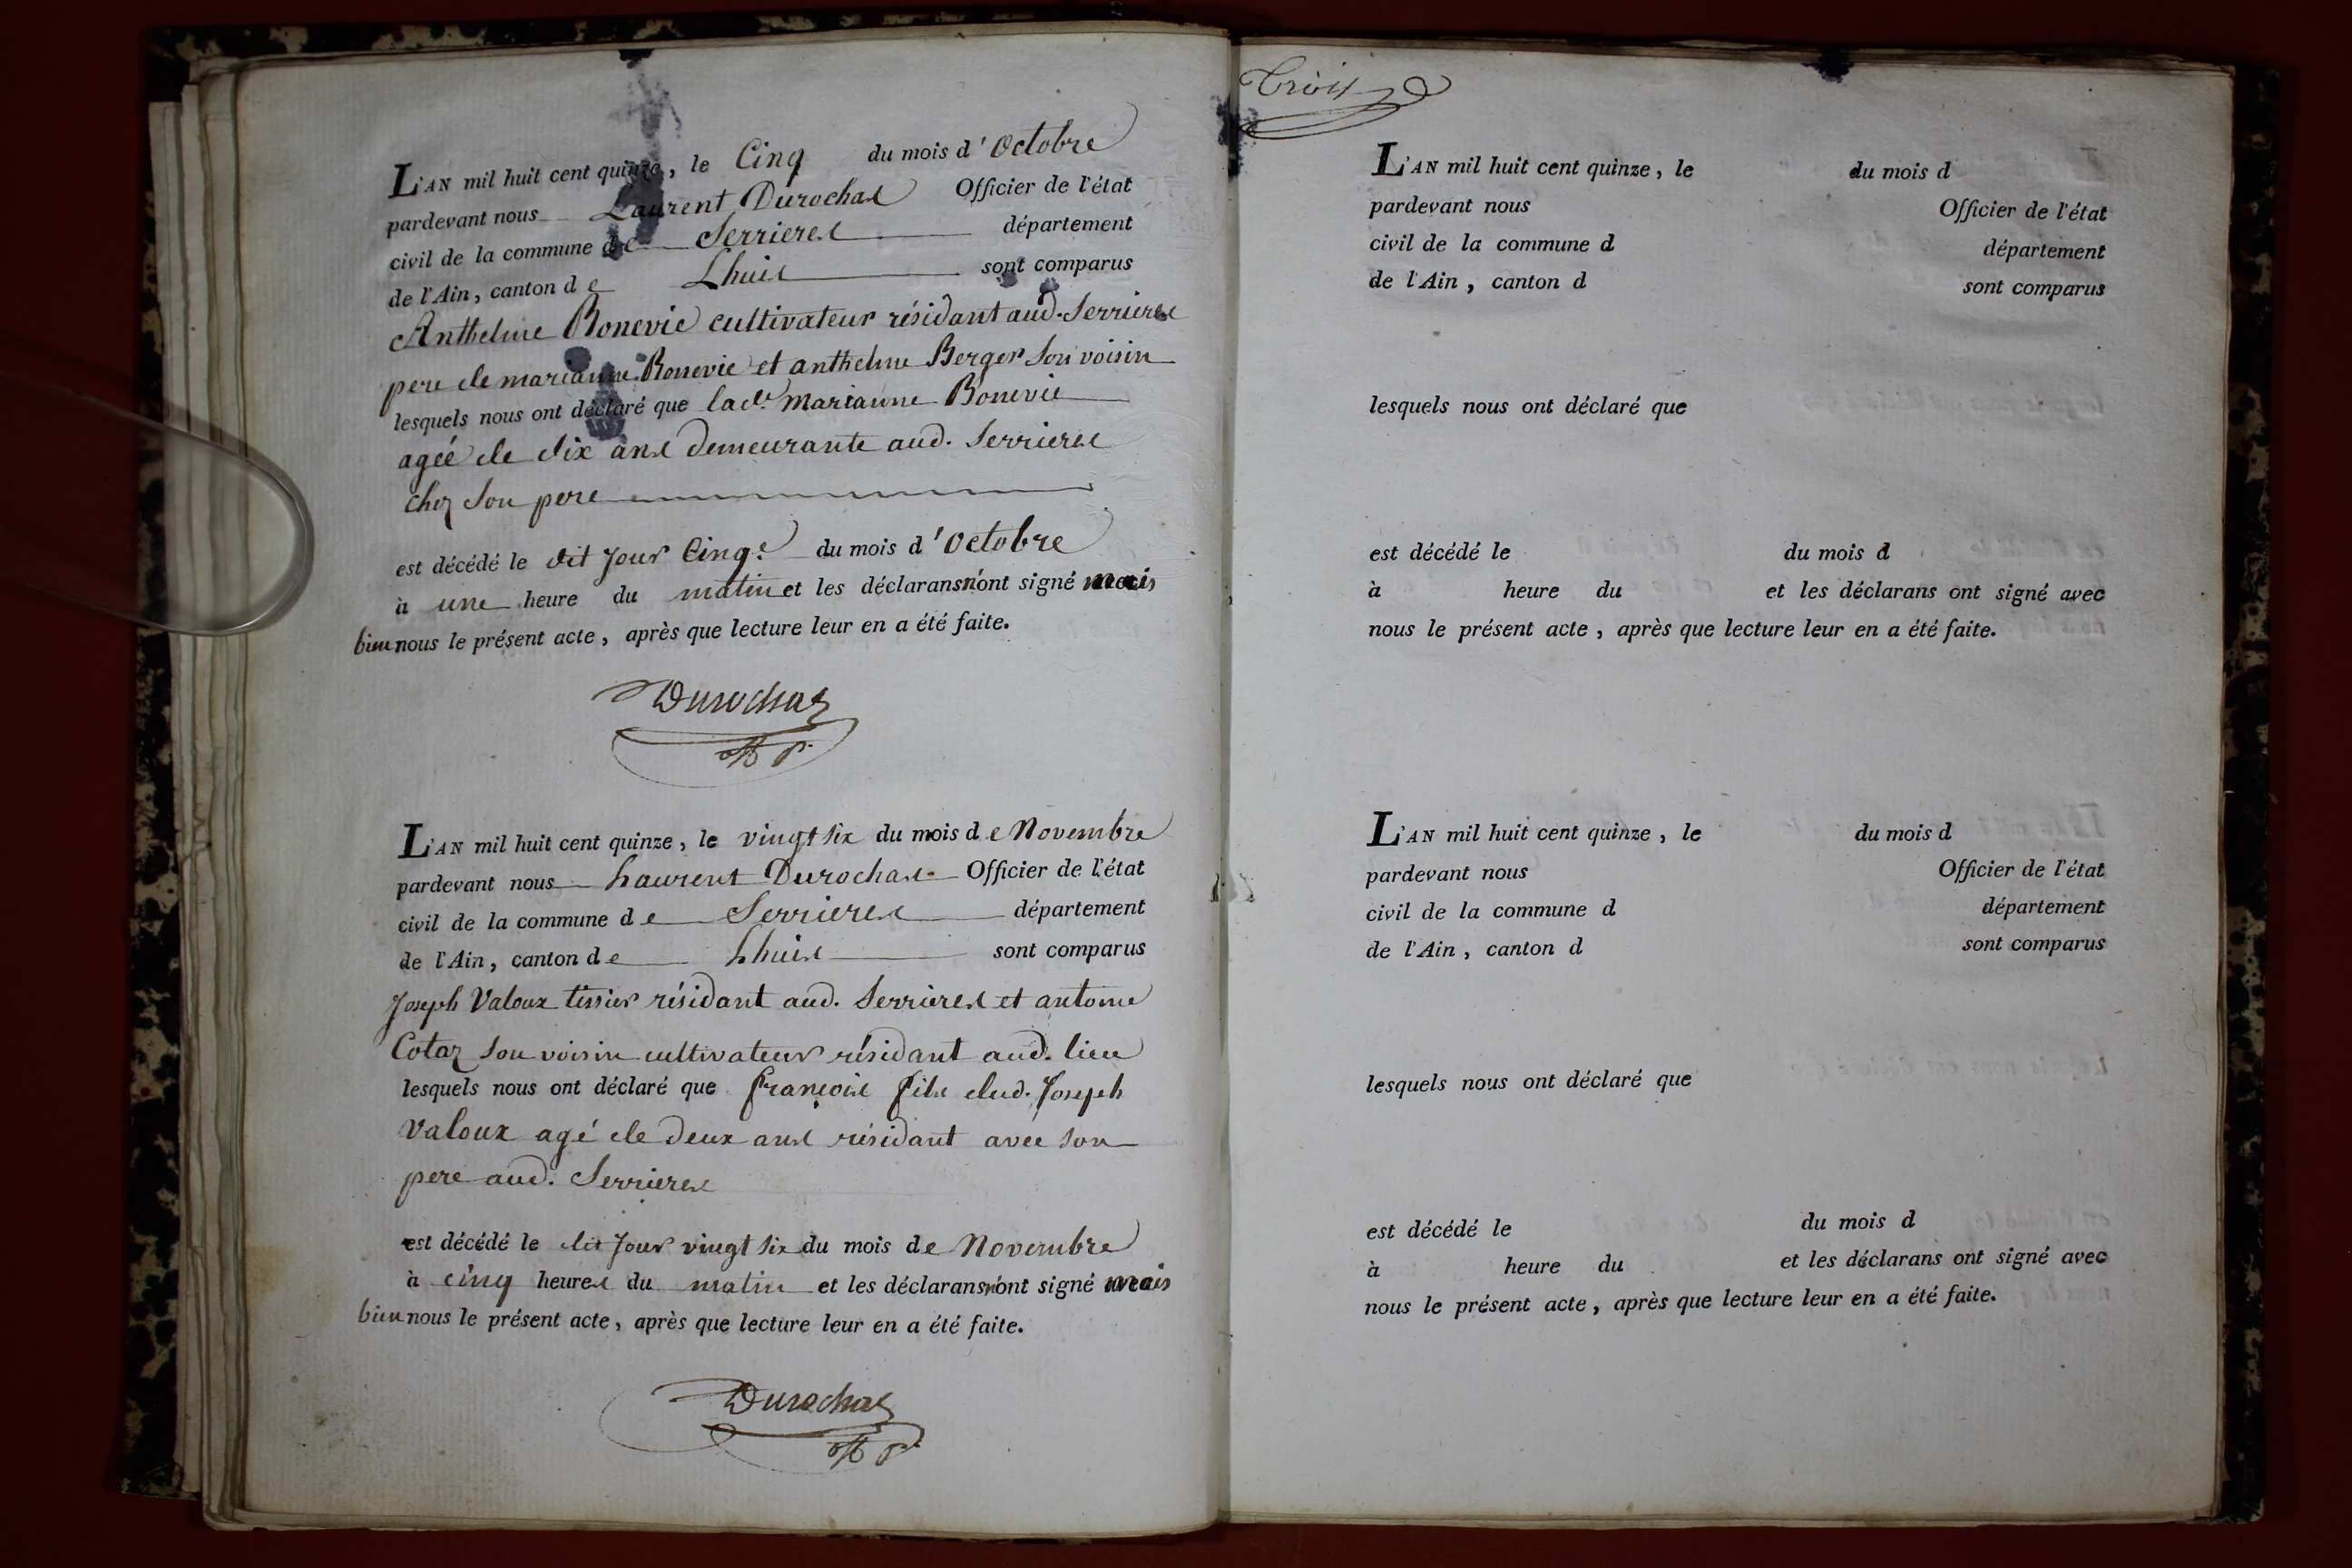 L'AN mil huit cent quinze, le Cinq du mois d'Octobre
pardevant nous Laurent Durochas Officier de l'état
civil de la commune de Serrieres département
de l'Ain, canton de Lhuis sont comparus
Anthelme Bonevie cultivateur résidant aud. Serrieres
pere de marianne Bonevie et anthelme Berger son voisin
lesquels nous ont déclaré que lade. Marianne Bonevie
agéé de dix ans demeurante aud. Serrieres
chez son pere
est décédé le dit jour Cinq. du mois d'Octobre
à une heure du matin et les déclarans n'ont signé mais
bien nous le présent acte, après que lecture leur en a été faite.
Durochas
L'AN mil huit cent quinze, le vingt six du mois de Novembre
pardevant nous Laurent Durochas Officier de l'état
civil de la commune de Serrieres département
de l'Ain, canton de Lhuis sont comparus
Joseph Valoux tissier résidant aud. Serrieres et antoine
Cotaz son voisin cultivateur résidant aud. lieu
lesquels nous ont déclaré que françois fils dud. Joseph
Valoux agé de deux ans résidant avec son
pere aud. Serrieres
est décédé le dit jour vingt six du mois de Novembre
à cinq heures du matin et les déclarans n'ont signé mais
bien nous le présent acte, après que lecture leur en a été faite.
Durochas
Trois
L'AN mil huit cent quinze, le du mois d
pardevant nous Officier de l'état
civil de la commune d département
de l'Ain, canton d sont comparus
lesquels nous ont déclaré que
est décédé le du mois d
à heure du et les déclarans ont signé avec
nous le présent acte, après que lecture leur en a été faite.
L'AN mil huit cent quinze, le du mois d
pardevant nous Officier de l'état
civil de la commune d département
de l'Ain, canton d sont comparus
lesquels nous ont déclaré que
est décédé le du mois d
à heure du et les déclarans ont signé avec
nous le présent acte, après que lecture leur en a été faite.